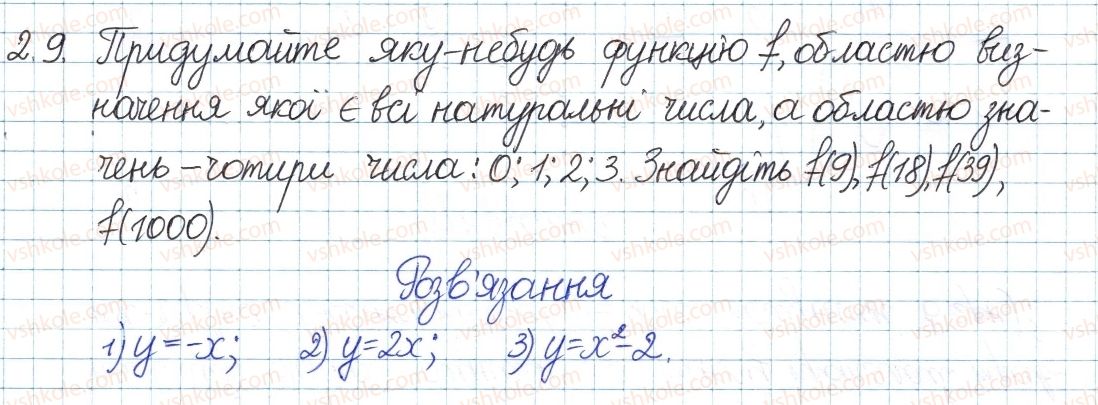 2.9. Придумайте яку-небудь функцію f, областю виз-
начення якої є всі натуральні числа, а областю зна-
чень – чотири числа: 0; 1; 2; 3. Знайдіть f(9), f(18), f(39),
f(1000).
Розв'язання
1) y=-x; 2) y=2x; 3) y=x²-2.